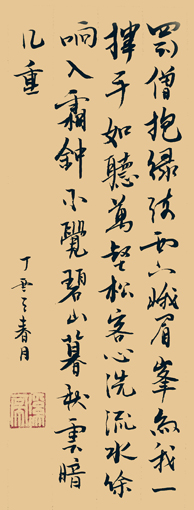 蜀僧抱綠綺西下峨眉峯為我一
揮手如聽萬壑松客心洗流水餘
响入霜鐘不覺碧山暮秋雲暗
几重
丁丑之春月